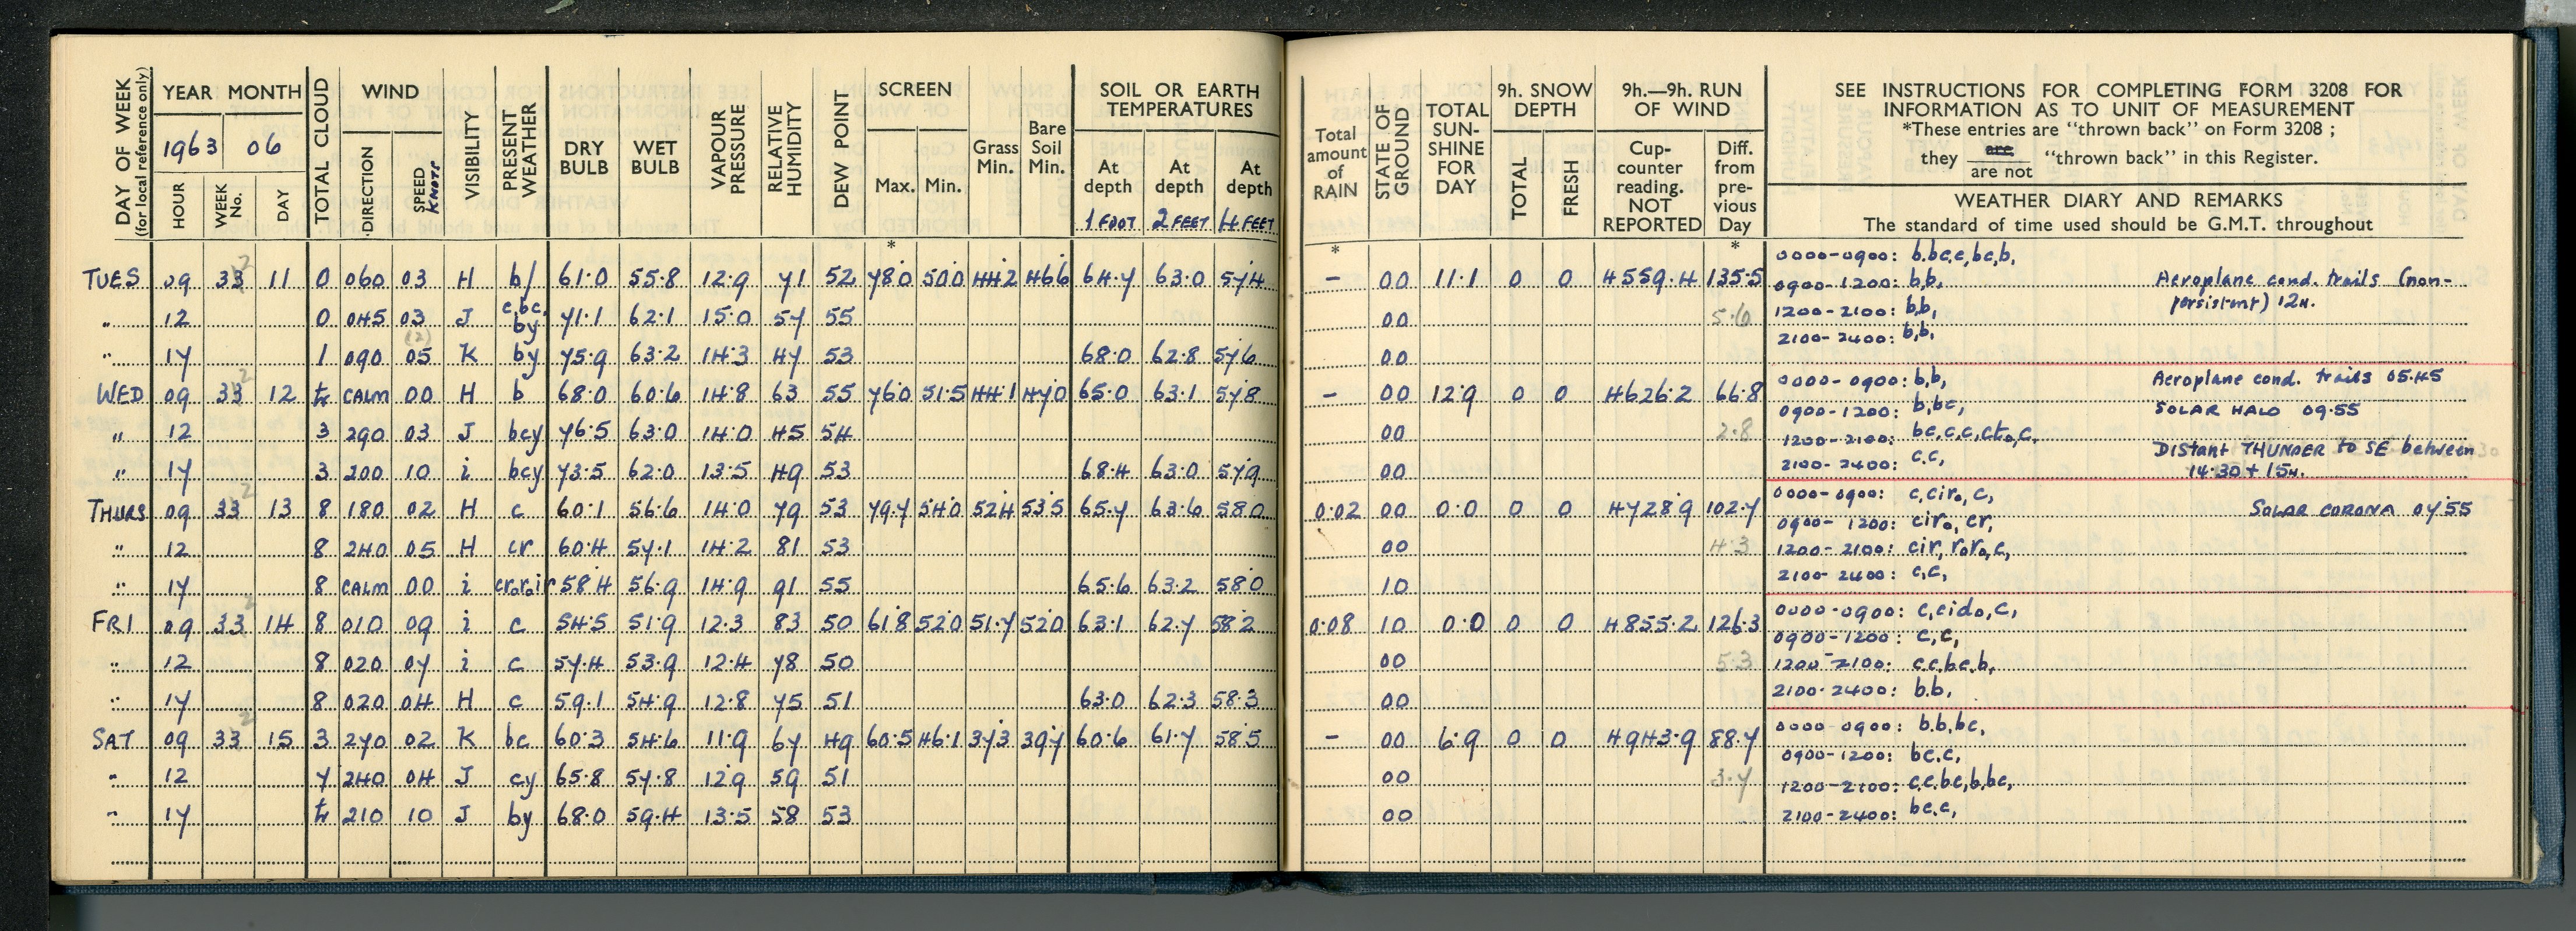 DAY OF WEEK (for local reference only) YEAR MONTH TOTAL CLOUD WIND VISIBILITY PRESENT WEATHER DRY BULB WET BULB VAPOUR PRESSURE RELATIVE HUMIDITY DEW POINT SCREEN Grass Min. Bare Soil Min. SOIL OR EARTH TEMPERATURES
1963 06 DIRECTION SPEED KNOTS Max. Min. At depth At depth At depth
HOUR WEEK No. DAY 1 FOOT 2 FEET 4 FEET
* 
TUES 09 33 2 11 0 060 03 H b/ 61.0 55.8 12.9 71 52 78.0 50.0 44.2 46.6 64.7 63.0 57.4
" 12 0 045 03 J c,bc, by 71.1 62.1 15.0 57 55
" 17 1 090 (2) 05 K by 75.9 63.2 14.3 47 53 68.0 62.8 57.6
WED 09 33 2 12 tr CALM 00 H b 68.0 60.6 14.8 63 55 76.0 51.5 44.1 47.0 65.0 63.1 57.8
" 12 3 290 03 J bcy 76.5 63.0 14.0 45 54
" 17 3 200 10 i bcy 73.5 62.0 13.5 49 53 68.4 63.0 57.9
THURS 09 33 2 13 8 180 02 H c 60.1 56.6 14.0 79 53 79.7 54.0 52.4 53.5 65.7 63.6 58.0
" 12 8 240 05 H cr 60.4 57.1 14.2 81 53
" 17 8 CALM 00 i cr.r.ir 58.4 56.9 14.9 91 55 65.6 63.2 58.0
FRI 09 33 2 14 8 010 09 i c 54.5 51.9 12.3 83 50 61.8 52.0 51.7 52.0 63.1 62.7 58.2
" 12 8 020 07 i c 57.4 53.9 12.4 78 50
" 17 8 020 04 H c 59.1 54.9 12.8 75 51 63.0 62.3 58.3
SAT 09 33 2 15 3 270 02 K bc 60.3 54.6 11.9 67 49 60.5 46.1 37.3 39.7 60.6 61.7 58.5
" 12 7 240 04 J cy 65.8 57.8 12.9 59 51
" 17 tr 210 10 J by 68.0 59.4 13.5 58 53
Total amount of RAIN STATE OF GROUND TOTAL SUN-SHINE FOR DAY 9h. SNOW DEPTH 9h.—9h. RUN OF WIND
TOTAL FRESH Cup-counter reading. NOT REPORTED Diff. from pre-vious Day
SEE INSTRUCTIONS FOR COMPLETING FORM 3208 FOR
INFORMATION AS TO UNIT OF MEASUREMENT
*These entries are "thrown back" on Form 3208 ;
they are "thrown back" in this Register.
are not
WEATHER DIARY AND REMARKS
The standard of time used should be G.M.T. throughout
* *
– 00 11.1 0 0 4559.4 135.5
00 5.6
00
– 00 12.9 0 0 4626.2 66.8
00 2.8
00
0.02 00 0.0 0 0 4728.9 102.7
00 4.3
10
0.08 10 0.0 0 0 4855.2 126.3
00 5.3
00
– 00 6.9 0 0 4943.9 88.7
00 3.7
00
0000-0900: b.bc,c,bc,b,
0900-1200: b,b, Aeroplane cond. trails (non-
1200-2100: b,b, persistent) 12H.
2100-2400: b,b,
0000-0900: b,b, Aeroplane cond. trails 05.45
0900-1200: b,bc, SOLAR HALO 09.55
1200-2100: bc,c,c,ct₀,c,
2100-2400: c.c, DISTANT THUNDER to SE between
14.30 + 15H.
0000-0900: c,cir₀,c, SOLAR CORONA 07.55
0900-1200: cir₀, cr,
1200-2100: cir, r₀r₀,c,
2100-2400: c,c,
0000-0900: c,cid₀,c,
0900-1200: c,c,
1200-2100: c.c,bc,b,
2100-2400: b.b,
0000-0900: b.b,bc,
0900-1200: bc.c,
1200-2100: c.c.bc,b,bc,
2100-2400: bc.c,